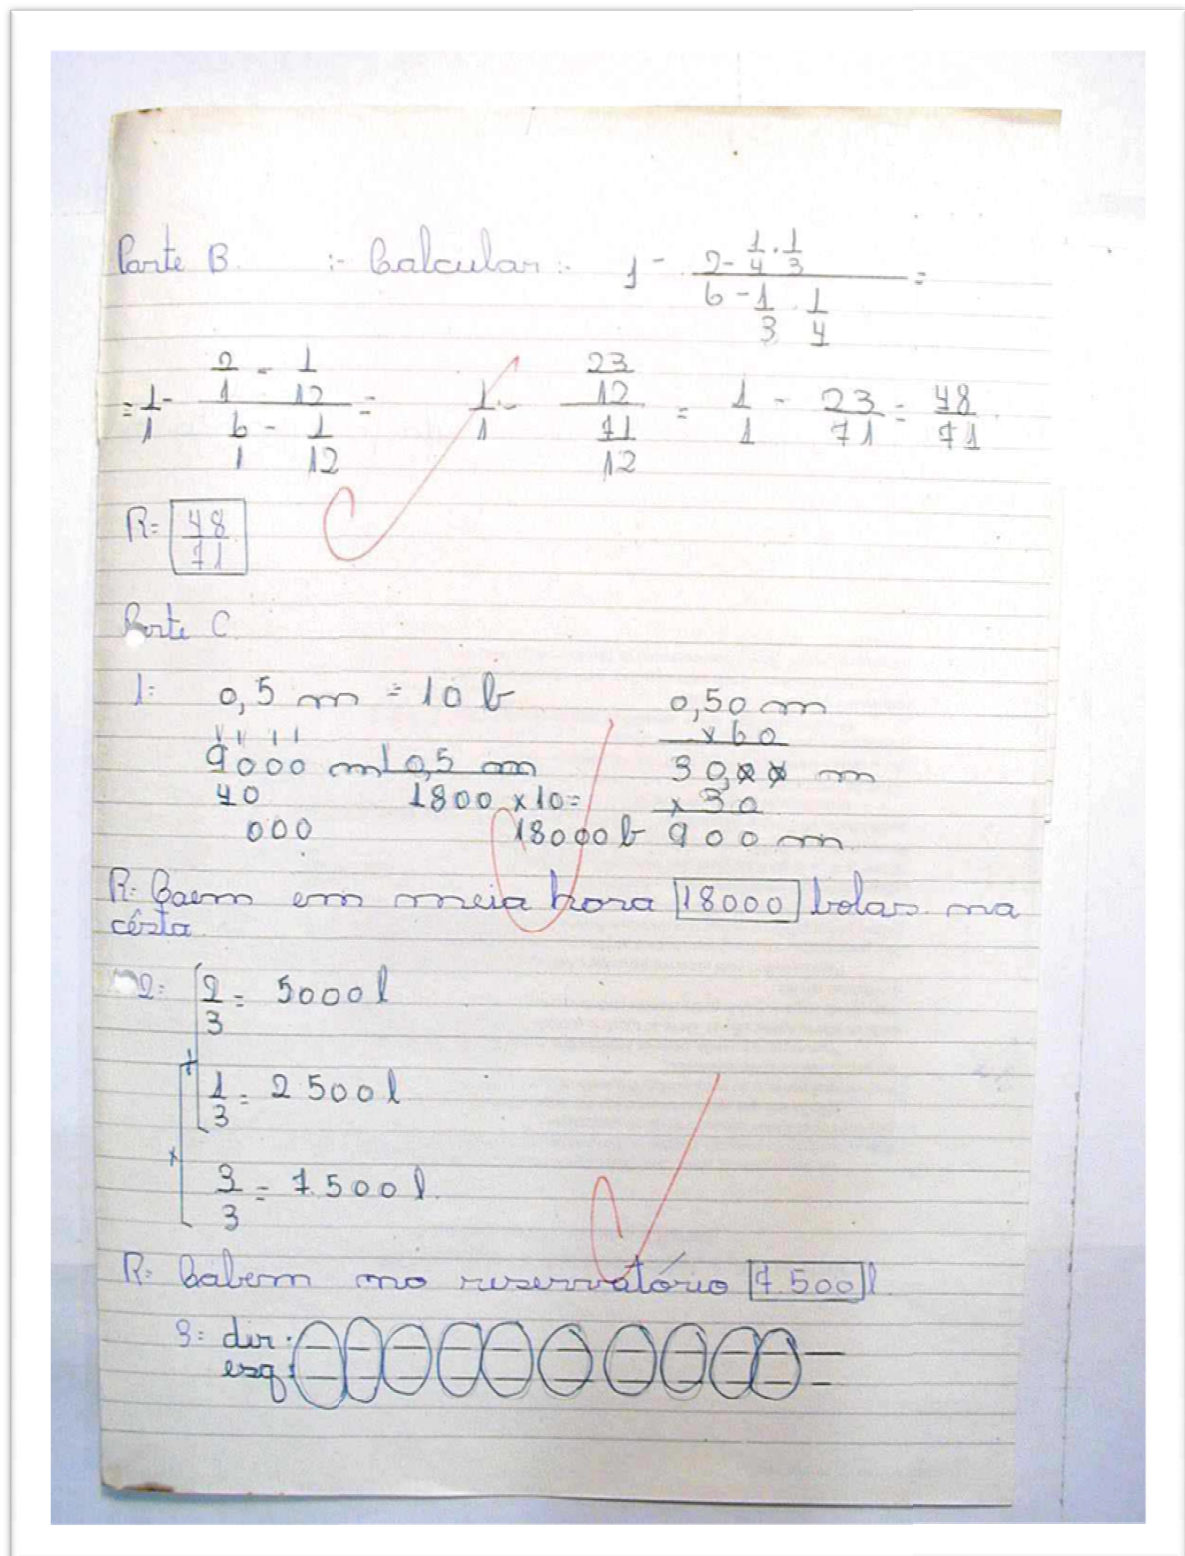 Parte B. :- Calcular :- 1 - (2 - 1/4 . 1/3)/(6 - 1/3 . 1/4) =
= 1/1 - (2/1 - 1/12)/(6/1 - 1/12) = 1/1 - (23/12)/(71/12) = 1/1 - 23/71 = 48/71.
R= 48/71
Parte C
1= 0,5 m = 10 b 0,50 m
x 60
9000 m 0,5 m 30,00 m
40 1800 x 10 = x 30
000 18000 b 900 m
R: Caem em meia hora 18000 bolas na
césta
2= 2/3 = 5000 l
+
1/3 = 2500 l
x
3/3 = 7.500 l.
R: Cabem no reservatório 7.500 l.
3= dir:
esq: